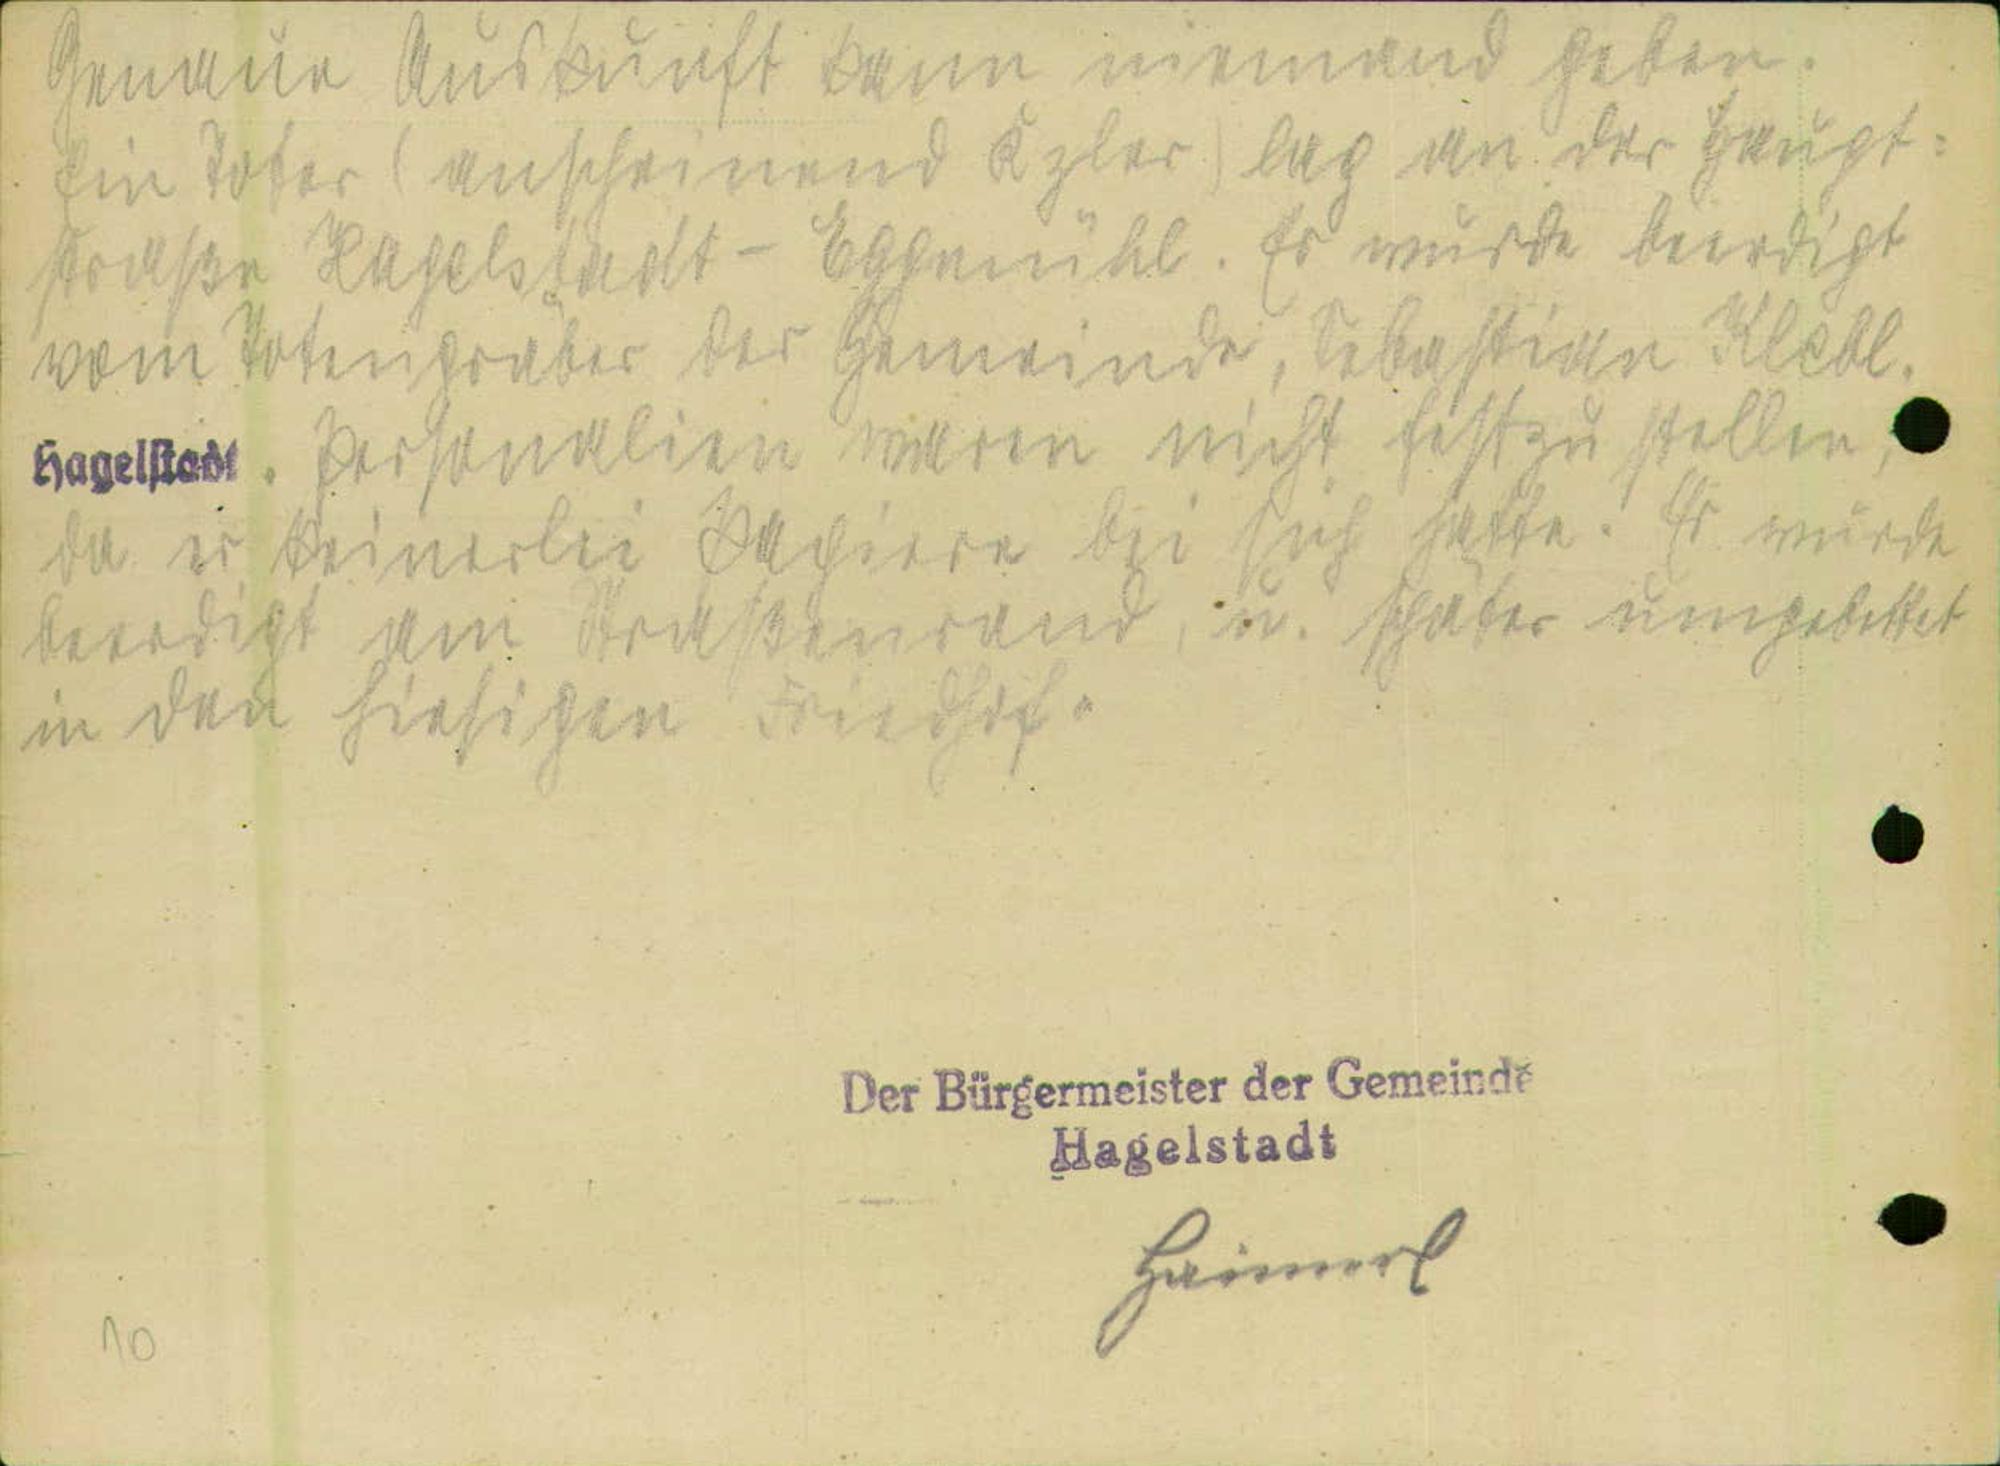 Genaue Auskunft kann niemand geben.
Ein Toter (anscheinend Kzler) lag an der Haupt=
straße Hagelstadt - Eggmühl. Er wurde beerdigt
vom Totengräber der Gemeinde, Sebastian Klebl.
Hagelstadt. Personalien waren nicht festzustellen,
da er keinerlei Papiere bei sich hatte. Er wurde
beerdigt am Straßenrand, u. später umgebettet
in den hiesigen Friedhof.
Der Bürgermeister der Gemeinde
Hagelstadt
Haimerl
10